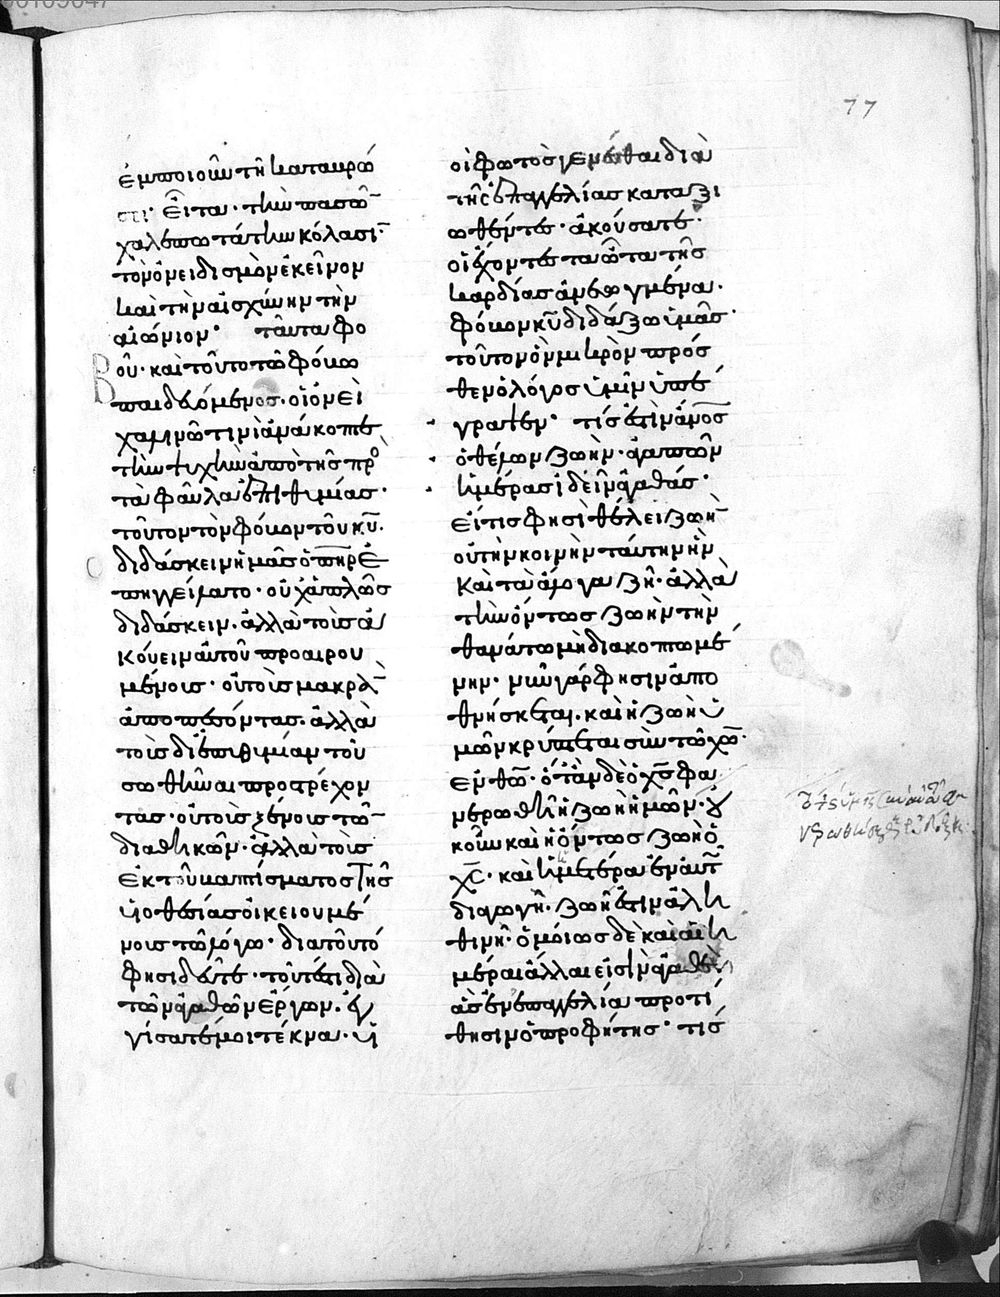 77
ἐμποιοῦν τῆ καπυρώ
στι· Εἶτα· τὴν πασῶ̄
χαλεπωτάτην κόλασι̅
τὸν ὀνειδισμὸν ἐκεῖνον
καὶ τὴν αἰσχύνην τὴν
αἰώνιον· ταῦτα φο
βοῦ· καὶ τούτω τῶ φόβω
παιδευόμενος· οἱονεὶ
χαλινῶ τινὶ ἀνάκοπτε
τὴν ψυχὴν ἀπὸ τῆς πρὸ
τὰ φαῦλα ἐπιθυμίας·
τοῦτον τὸν φόβον τοῦ κ̅υ̅·
διδάσκειν ἡμᾶς ὁ π̅η̅ρ ἐ
πηγγείλατο· οὐχ ἁπλῶς
διδάσκειν· ἀλλὰ τοῖς ἀ
κούειν αὐτοῦ προαιρου
μένοις· οὐ τοῖς μακρὰ̅
ἀποπεσόντας· ἀλλὰ
τοῖς δι ἐπιθυμίαν τοῦ
σωθῆναι προστρέχον
τας· οὐ τοῖς ξένοις τῶ̅
διαθηκῶν· ἀλλὰ τοῖς
ἐκ τοῦ βαπτίσματος τῆς
υἱοθεσίας οἰκειουμέ
νοις τῶ λόγω· διὰ τοῦτό
φησι δεῦτε· τουτέστι διὰ
τῶν ἀγαθῶν ἔργων· ἐγ
γίσατέ μοι τέκνα· υἱ
οὶ φωτὸς γενέσθαι διὰ
τῆς ἐπαγγελίας καταξι
ωθέντες· ἀκούσατε·
οἱ ἔχοντες τὰ ὦτα τῆς
καρδίας ἀνεωγμένα·
φόβον κ̅υ̅ διδάξω ὑμᾶς·
τοῦτον ὃν μικρὸν πρόσ
θεν ὁ λόγος ὑμῖν ὑπέ
γραψεν· τίς ἐστιν ἄνος
ὁ θέλων ζωὴν· ἀγαπῶν
ἡμέρας ἰδεῖν ἀγαθάς·
Εἴ τις φησὶ θέλει ζωὴ̅
οὐ τὴν κοινὴν ταύτην ἣν
Καὶ τὰ ἄλογα ζῆ· ἀλλὰ
τὴν ὄντως ζωὴν τὴν
θανάτω μὴ διακοπτομέ
νην· νῦν γάρ φησιν ἀπο
θνήσκεται· καὶ ἡ ζωὴ ὑ
μῶν κρύπτεται σὺν τῶ χ̅ω̅·
ἐν θ̅ω̅· ὅταν δὲ ὁ χ̅ς̅ φα
νερωθῆ ἡ ζωὴ ἡμῶν·
κοῦν καὶ ἡ ὄντως ζωὴ ὁ
χ̅ς̅· καὶ ἡ ἡμετέρα ἐν αὐτῶ
διαγωγὴ· ζωή ἐστιν ἀλη
θινή· ὁμοίως δὲ καὶ αἱ ἡ
μέραι ἄλλαι εἰσὶν ἀγαθαὶ
ἃς ἐν ἐπαγγελία προτί
θησιν ὁ προφήτης· τίς